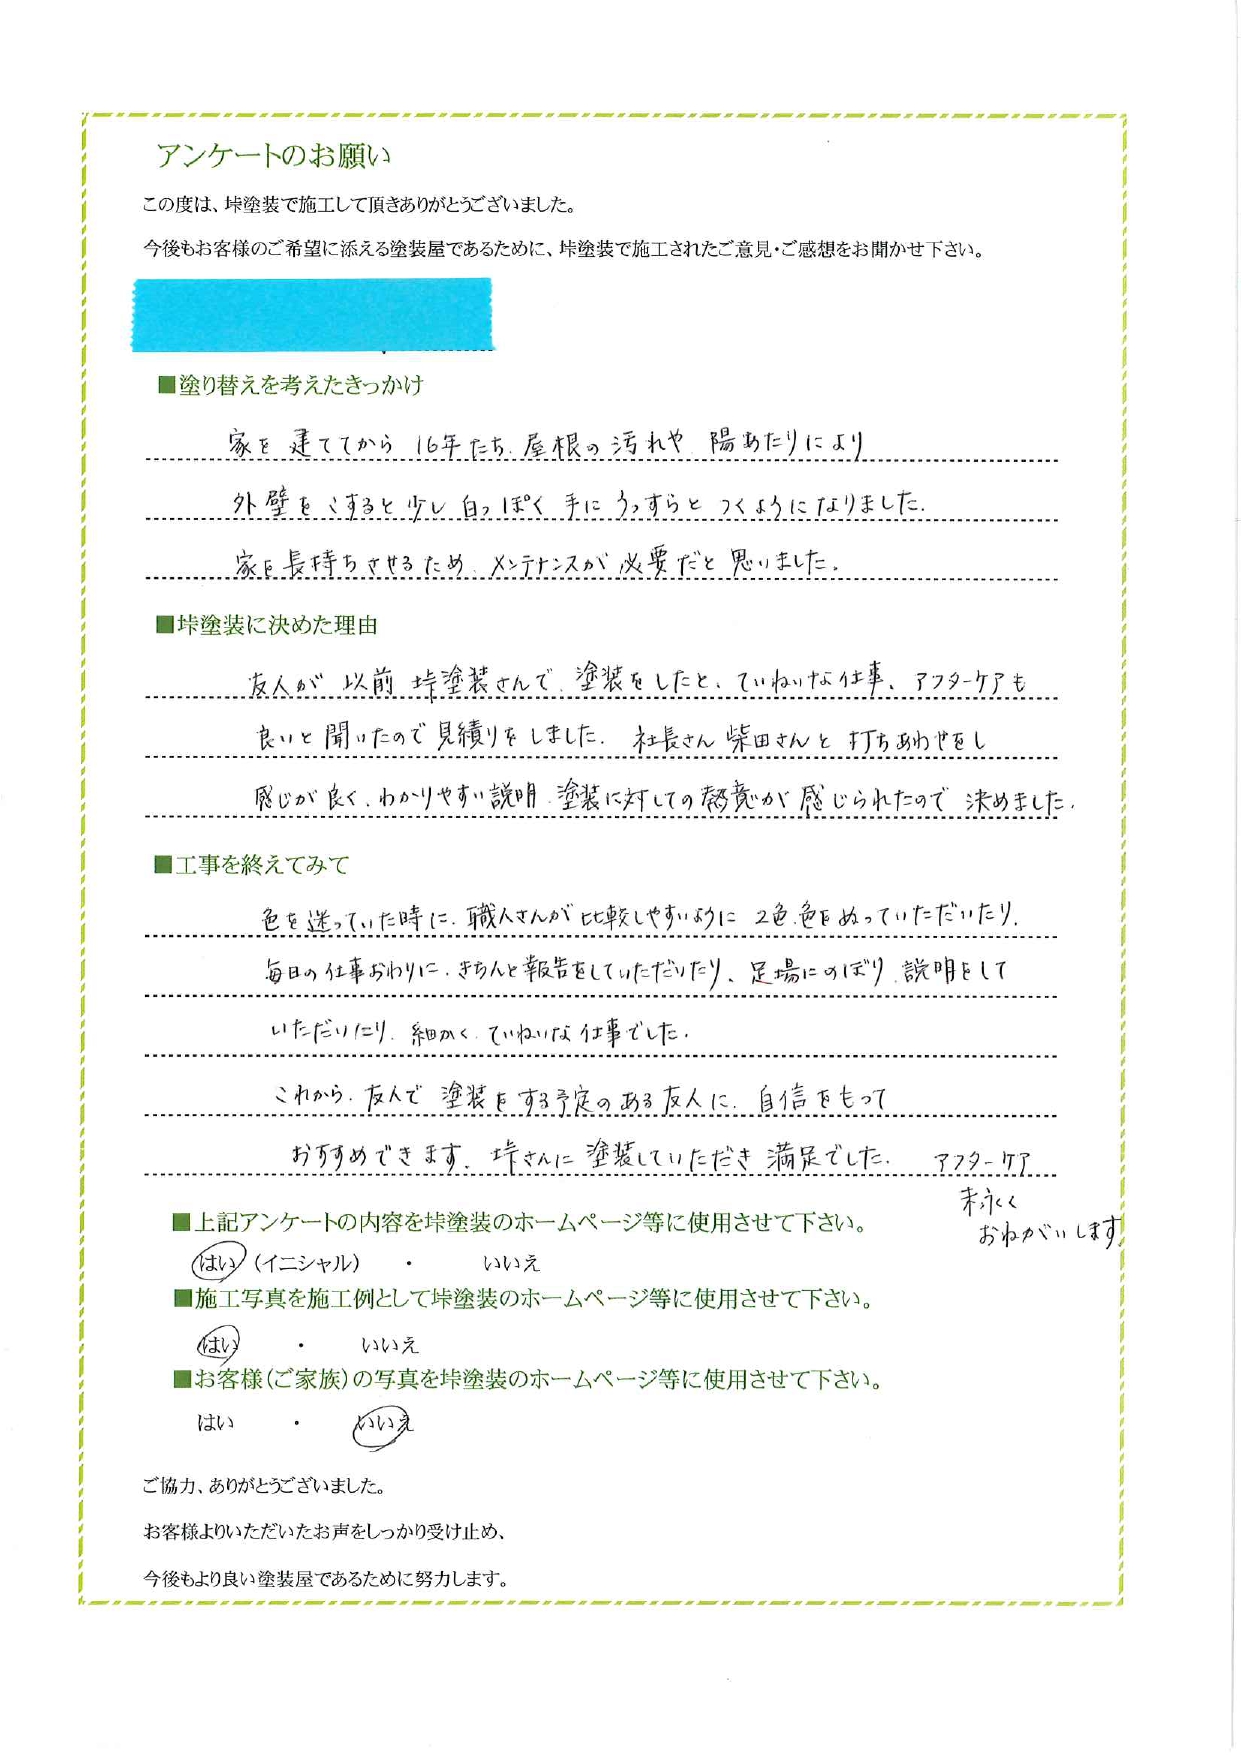 アンケートのお願い
この度は、垰塗装で施工して頂きありがとうございました。
今後もお客様のご希望に添える塗装屋であるために、垰塗装で施工されたご意見・ご感想をお聞かせ下さい。
■塗り替えを考えたきっかけ
家を建ててから 16年たち、屋根の汚れや 陽あたりにより
外壁をこすると少し白っぽく手にうっすらとつくようになりました。
家を長持ちさせるため、メンテナンスが必要だと思いました。
■垰塗装に決めた理由
友人が以前 垰塗装さんで、塗装をしたと、ていねいな仕事、アフターケアも
良いと聞いたので見積りをしました。社長さん 柴田さんと打ちあわせをし
感じが良く、わかりやすい説明、塗装に対しての熱意が感じられたので 決めました。
■工事を終えてみて
色を迷っていた時に、職人さんが比較しやすいように 2色、色をぬっていただいたり、
毎日の仕事おわりに、きちんと報告をしていただいたり、足場にのぼり、説明をして
いただいたり、細かく、ていねいな仕事でした。
これから、友人で 塗装をする予定のある友人に、自信をもって
おすすめできます。垰さんに 塗装していただき 満足でした。 アフターケア
末永く
おねがいします
■上記アンケートの内容を垰塗装のホームページ等に使用させて下さい。
はい(イニシャル) ・ いいえ
■施工写真を施工例として垰塗装のホームページ等に使用させて下さい。
はい ・ いいえ
■お客様(ご家族)の写真を垰塗装のホームページ等に使用させて下さい。
はい ・ いいえ
ご協力、ありがとうございました。
お客様よりいただいたお声をしっかり受け止め、
今後もより良い塗装屋であるために努力します。